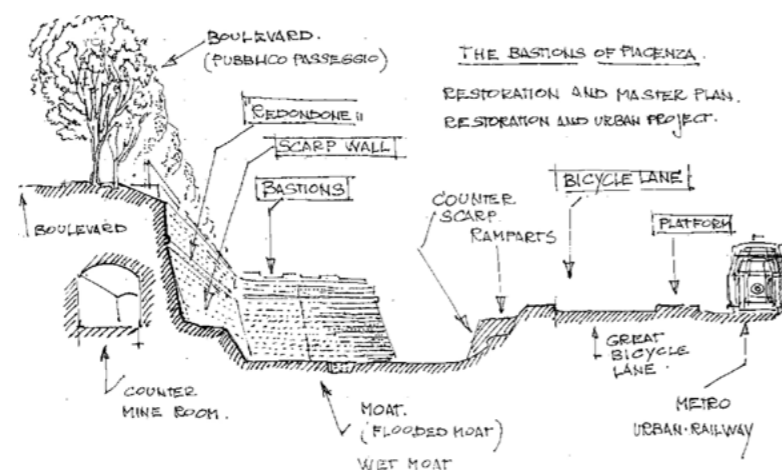 BOULEVARD.
(PUBBLICO PASSEGGIO)
THE BASTIONS OF PIACENZA.
RESTORATION AND MASTER PLAN.
RESTORATION AND URBAN PROJECT.
"REDONDONE"
SCARP WALL
BASTIONS
BOULEVARD
COUNTER
SCARP
RAMPARTS
BICYCLE LANE
PLATFORM
COUNTER
MINE ROOM.
MOAT.
(FLOODED MOAT)
WET MOAT
GREAT
BICYCLE
LANE.
METRO
URBAN-RAILWAY